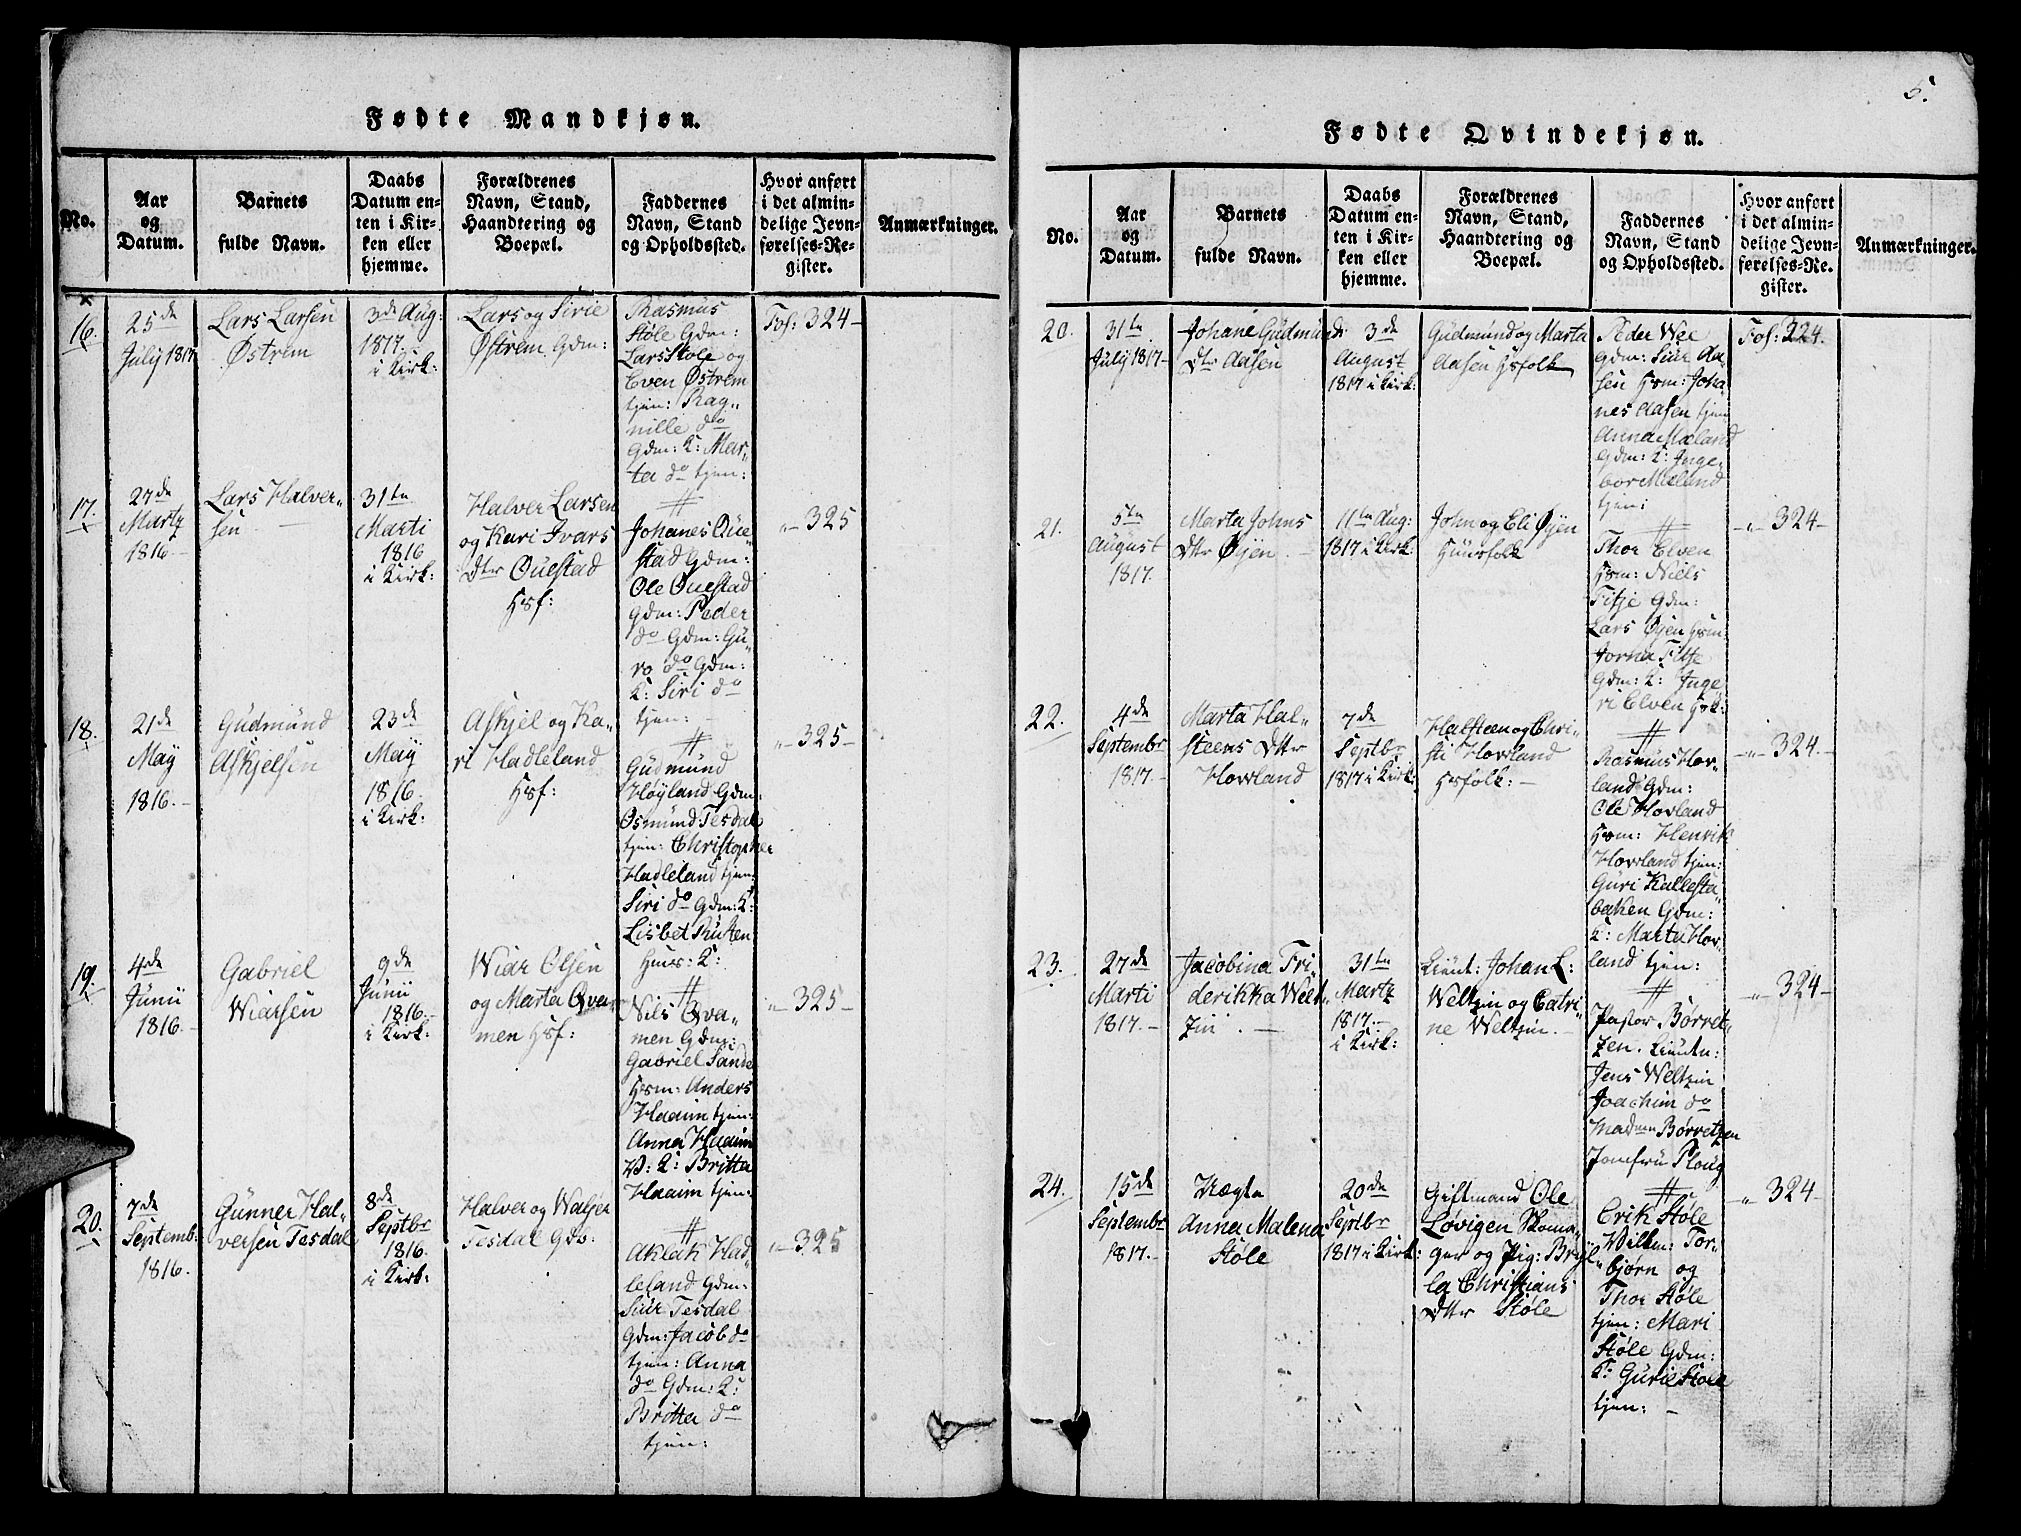 5.
Fødte Mandkjøn.
No.
Aar
og
Datum.
Barnets
fulde Navn.
Daabs
Datum en-
ten i Kir-
ken eller
hjemme.
Forældrenes
Navn, Stand,
Haandtering og
Boepæl.
Faddernes
Navn, Stand
og Opholdssted.
Hvor anført
i det almin-
delige Jevn-
førelses-Re-
gister.
Anmærkninger.
16.
25de
July 1817
Lars Larsen
Østrem
3de Aug:
1817.
i Kirk:
Lars og Sirie
Østrem Gdm:
Rasmus
Støle Gdm:
Lars Støle og
Even Østrem
tjen: Rag„
nille do
Gdm: K: Mar„
ta do tjen:
Fol: 324-
17.
27de
Martz
1816.-
Lars Halver„
sen -
31te
Marti
1816
i Kirk:
Halver Larsen
og Kari Ivars
Dtr Ouestad
Hsf:
Johanes Oue„
stad Gdm:
Ole Ouestad
Gdm: Peder
do Gdm: Gu„
ro do Gdm:
K: Siri do
tjen: -
„- 325
18.
21de
May
1816.-
Gudmund
Askjelsen
23de
May
1816.
i Kirk:
Askjel og Ka„
ri Hadleland
Hsf:
Gudmund
Høyland Gdm:
Osmund Tesdal
tjen: Christopher
Hadleland tjen:
Siri do Gdm: K:
Lisbet Rusten
Huus: K:
„- 325-
19.
4de
Junii
1816.-
Gabriel
Wiarsen
9de
Junii
1816.-
i Kirk:
Wiar Olsen
og Marta Qva„
men Hsf:
Nils Qva„
men Gdm:
Gabriel Sande
Hsm: Anders
Haaim tjen:
Anna Haaim
P: K: Britta
Haaim tjen:
„- 325-
20.
7de
Septemb:
1816.
Gunner Hal„
versen Tesdal
8de
Septbr
1816.
i Kirk:
Halver og Walger
Tesdal Gds:
Aklak Had„
leland Gdm:
Siur Tesdal
Gdm: Jacob do
tjen: Anna
do Gdm: K:
Britta do
tjen:
„- 325
Fødte Qvindekjøn.
No.
Aar
og
Datum.
Barnets
fulde Navn.
Daabs
Datum en-
ten i Kir-
ken eller
hjemme.
Forældrenes
Navn, Stand,
Haandtering og
Boepæl.
Faddernes
Navn, Stand
og Opholdssted.
Hvor anført
i det almin-
delige Jevn-
førelses-Re-
gister.
Anmærkninger.
20.
31te
July 1817-
Johane Gudmunds
Dtr Aasen
3de
August
1817 i Kirk:
Gudmund og Marta
Aasen Hsfolk
Peder Wee
Gdm: Siur Aa„
sen Hsm: Joha„
nes Aasen tjen
Anna Mæland
Gdm: K: Inge„
bor Mæland
tjen:
Fol: 324.
21.
5te
August
1817.
Marta Johns
Dttr Øyen -
11te Aug:
1817 i Kirk:
John og Eli Øyen
Huusfolk
Thor Elven
Hsm: Niels
Titje Gdm:
Lars Øyen Hsm:
Jorna Titje
Gdm: K: Inge„
ri Elven Hsk:
„- 324-
22.
4de
Septembr
1817.-
Marta Hal„
steens Dttr
Hovland
7de
Septbr
1817 i Kirk:
Halsteen og Chri„
sti Hovland
Hsfolk: -
Rasmus Hov„
land Gdm:
Ole Hovland
Hsm: Henrik
Hovland tjen:
Guri Kallesta„
bakken Gdm:
K: Marta Hov„
land tjen:
„- 324.
23.
27de
Marti
1817.-
Jacobina Fri„
derikka Welt„
zin. -
31te
Martz
1817.-
i Kirk:
Lieut: Johan L:
Weltzin og Catri„
ne Weltzin. -
Pastor Børret„
zen. Lieutn:
Jens Weltzin
Joachim do
Madme Børretzen
Jomfru Ploug
„- 324-
24.
15de
Septembr
1817.-
Uægte
Anna Malena
Støle
20de
Septbr
1817 i Kirk:
Giftmand Ole
Løvigen Skoma„
ger og Pig: Bryl„
la Christians
Dttr Støle
Erik Støle
Wilkm: Tor„
bjørn og
Thor Støle
tjen: Mari
Støle Gdm:
K: Gurie Støle
tjen: -
„- 324-